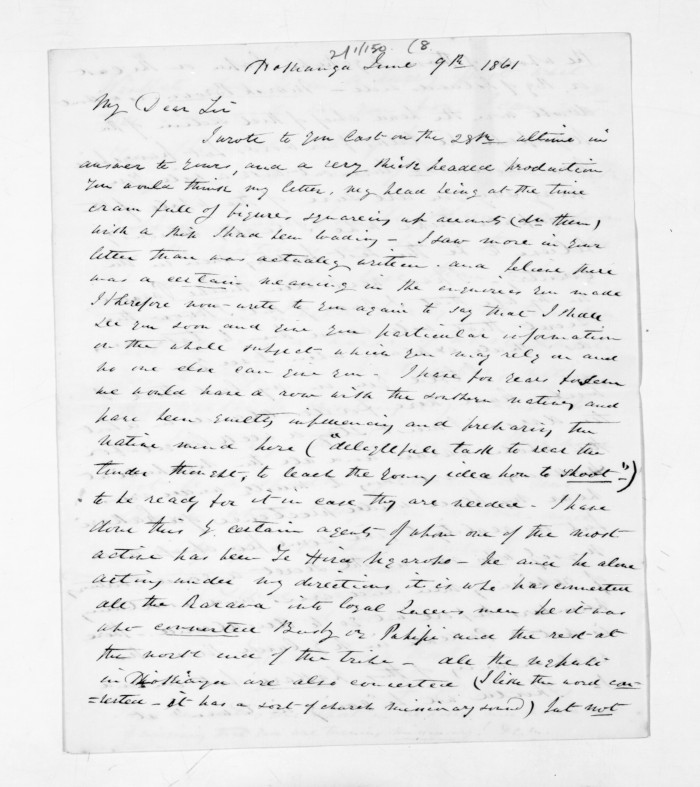 21/159 (8
Hokianga June 9th 1861
My Dear Sir
I wrote to you last on the 28th ultimo in
answer to yours, and a very thick headed production
you would think my letter, my head being at the time
cram full of figures squaring up accounts (dn them)
with a ship I had been loading - I saw more in your
letter than was actually written and believe there
was a certain meaning in the enquiries you made
I therefore now write to you again to say that I shall
see you soon and give you particular information
on the whole subject which you may rely on and
no one else can give you - I have for years foreseen
we would have a row with the southern natives and
have been quietly influencing and preparing the
native mind here ("delightfull task to rear the
tender thought, to teach the young idea how to shoot")
to be ready for it in case they are needed - I have
done this by certain agents of whom one of the most
active has been Te Hira - he and he alone
acting under my directions it is who has converted
all the Rarawa into loyal Queens men he it was
who converted Busby or Pahipi and the rest at
the north end of the tribe - all the ngapuhi
in Hokianga are also converted (I like the word con-
=verted - it has a sort of church missionary sound) but not